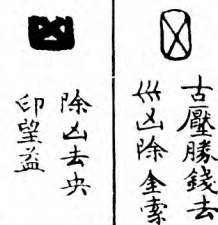 古壓勝錢去
凶除 金索
除凶去央
印望益